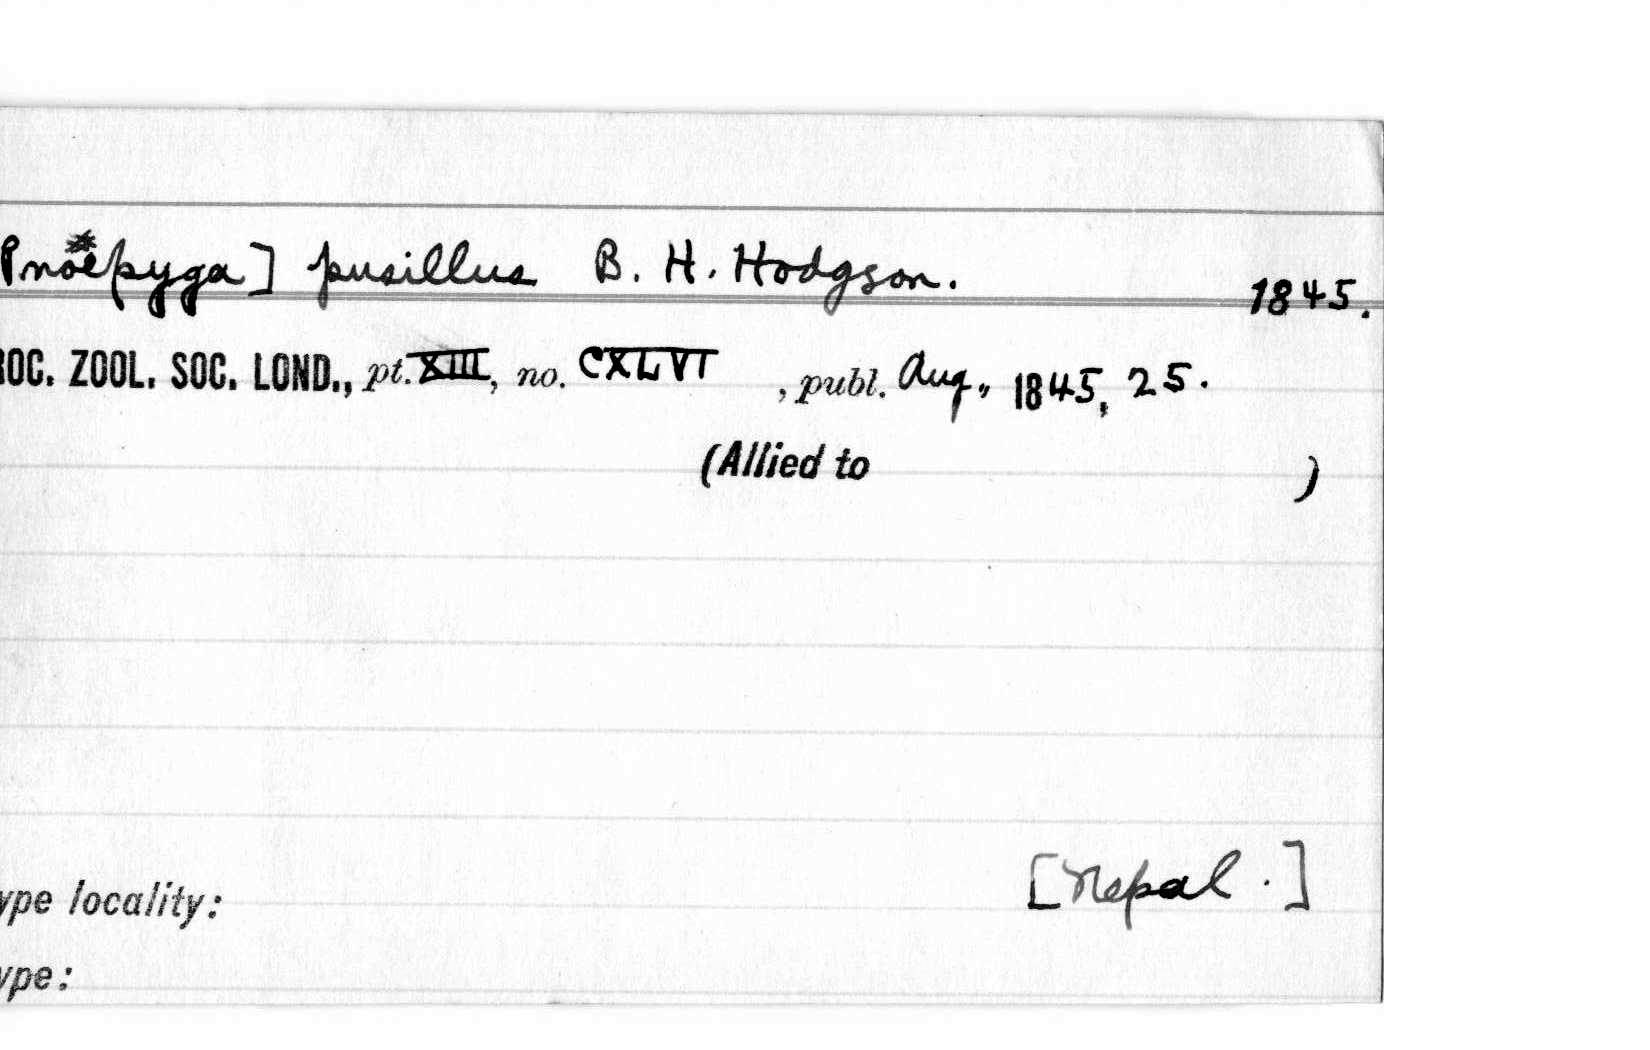 Pnoëpyga] pusillus B. H. Hodgson. 1845.
ROC. ZOOL. SOC. LOND., pt. XIII, no. CXLVI , publ. Aug., 1845, 25.
(Allied to )
ype locality: [Nepal.]
ype: